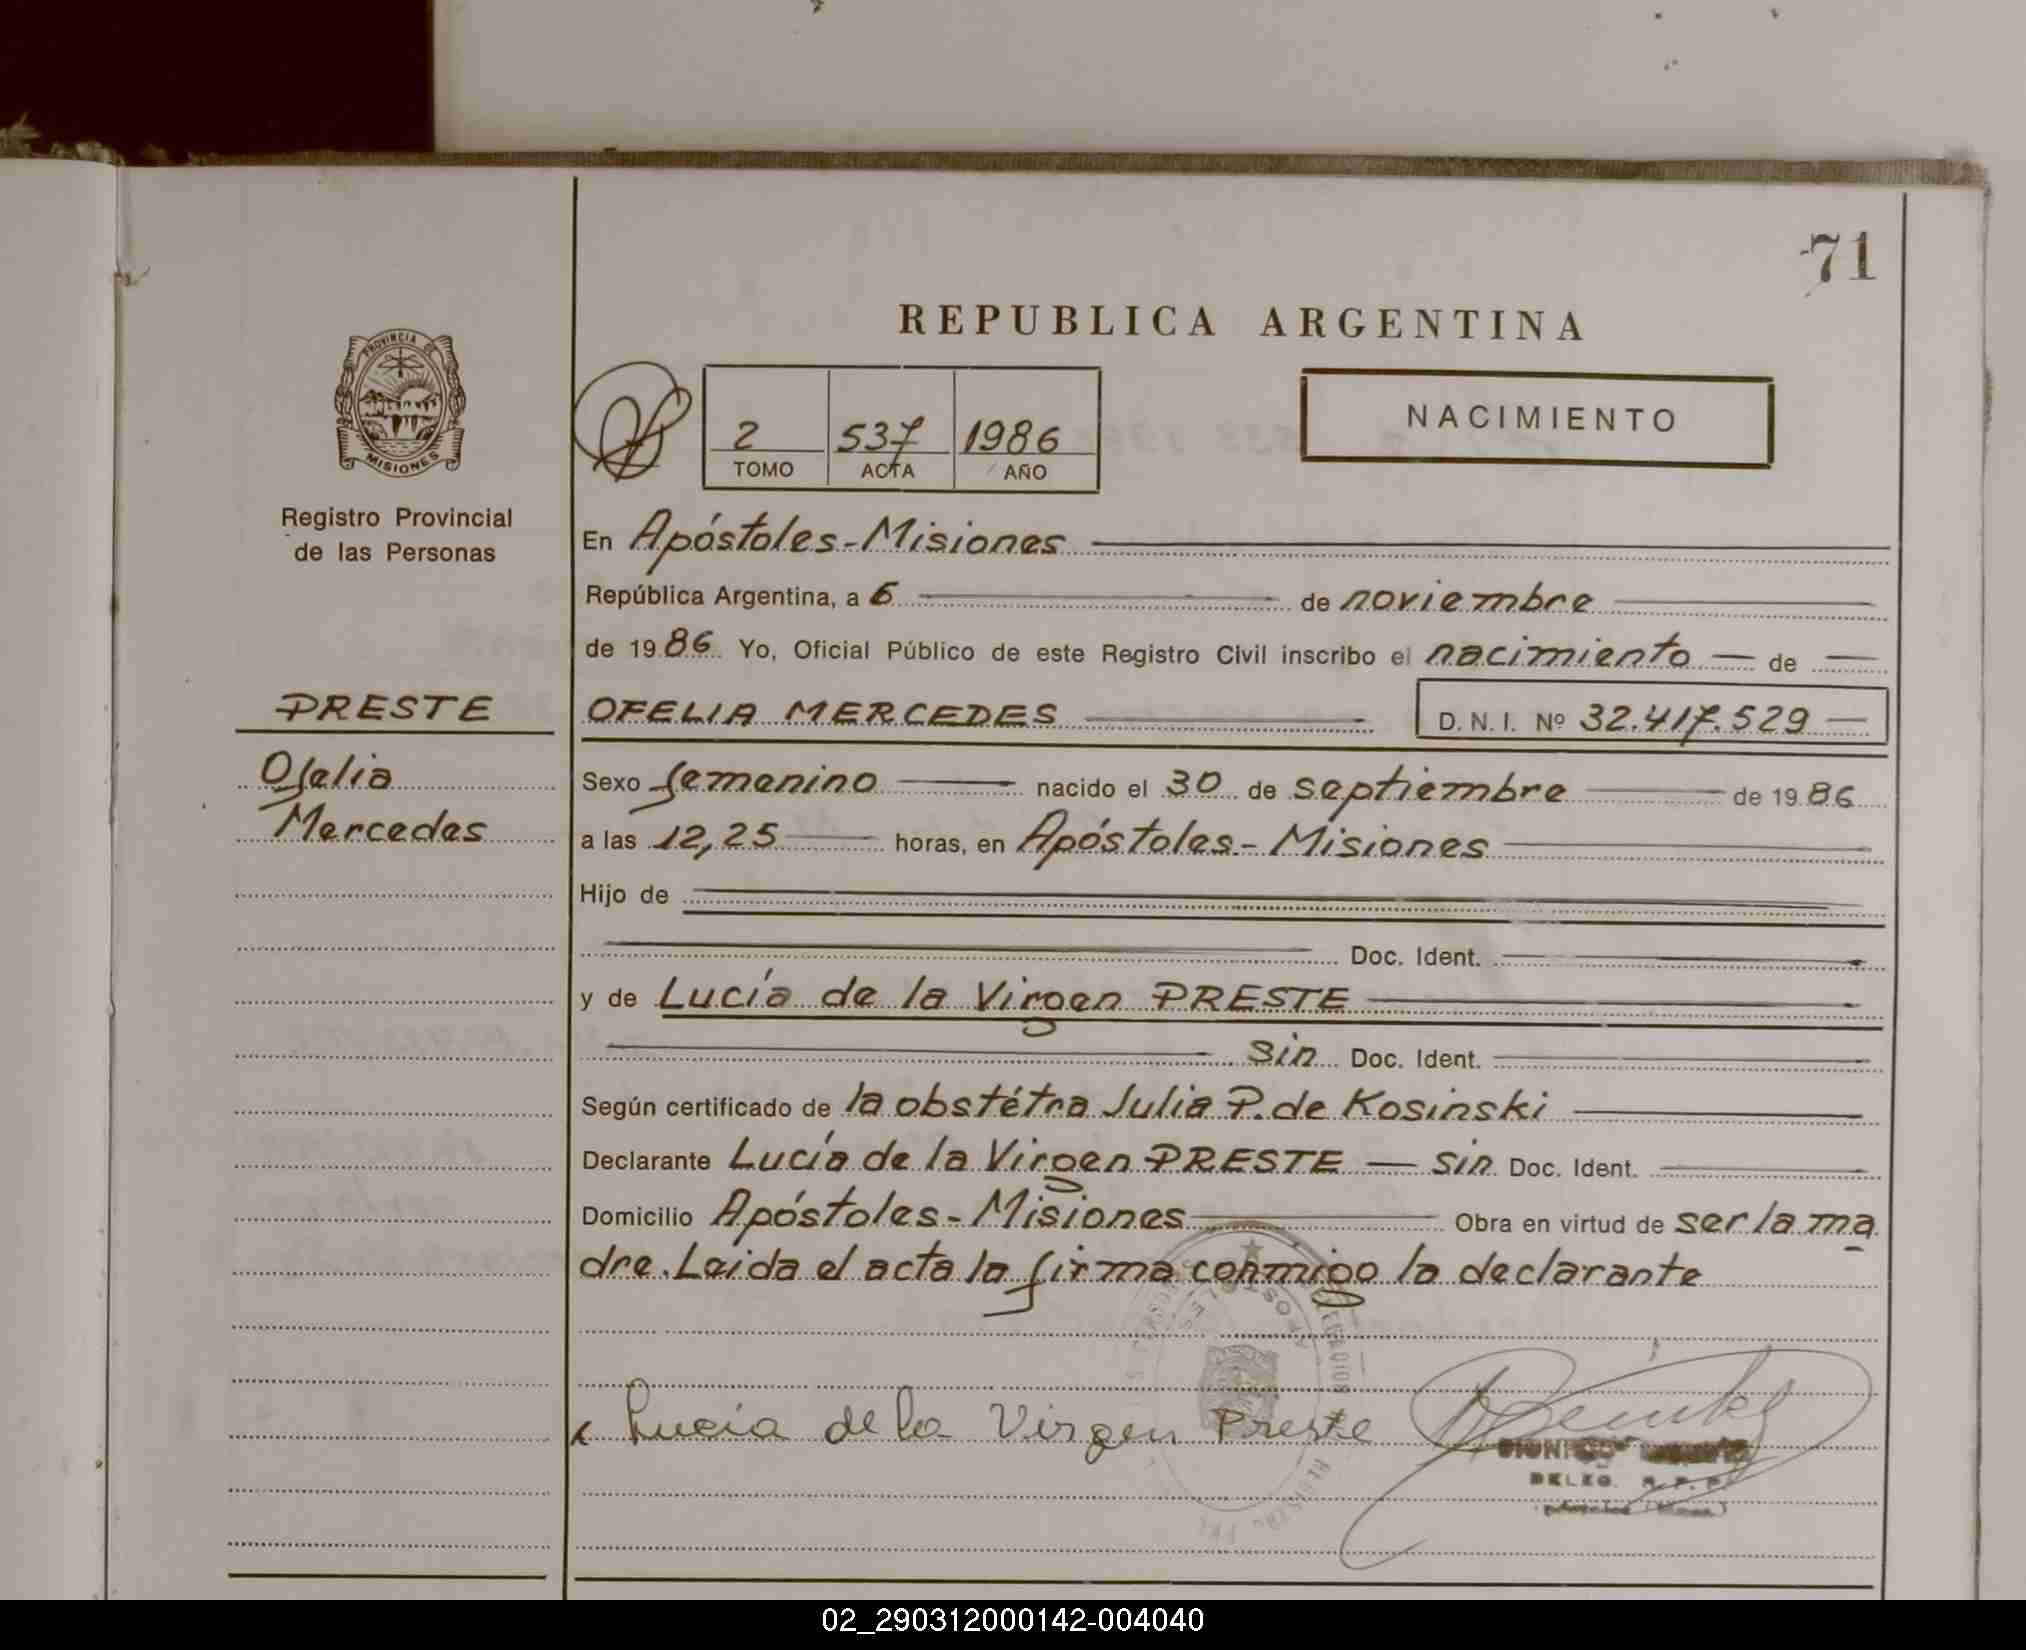 71
REPUBLICA ARGENTINA
PROVINCIA DE
MISIONES
2 537 1986
TOMO ACTA AÑO
NACIMIENTO
Registro Provincial
de las Personas
En Apóstoles-Misiones
República Argentina, a 6 de noviembre
de 1986 Yo, Oficial Público de este Registro Civil inscribo el nacimiento de
PRESTE
OFELIA MERCEDES D. N. I. Nº 32.417.529
Ofelia
Mercedes
Sexo femenino nacido el 30 de septiembre de 1986
a las 12,25 horas, en Apóstoles-Misiones
Hijo de
Doc. Ident.
y de Lucía de la Virgen PRESTE
sin Doc. Ident.
Según certificado de la obstétra Julia P. de Kosinski
Declarante Lucía de la Virgen PRESTE — sin Doc. Ident.
Domicilio Apóstoles-Misiones Obra en virtud de ser la ma
dre. Leida el acta la firma conmigo la declarante
APOSTOLES
x Lucía de la Virgen Preste
DELEG. R. P. P.
02_290312000142-004040